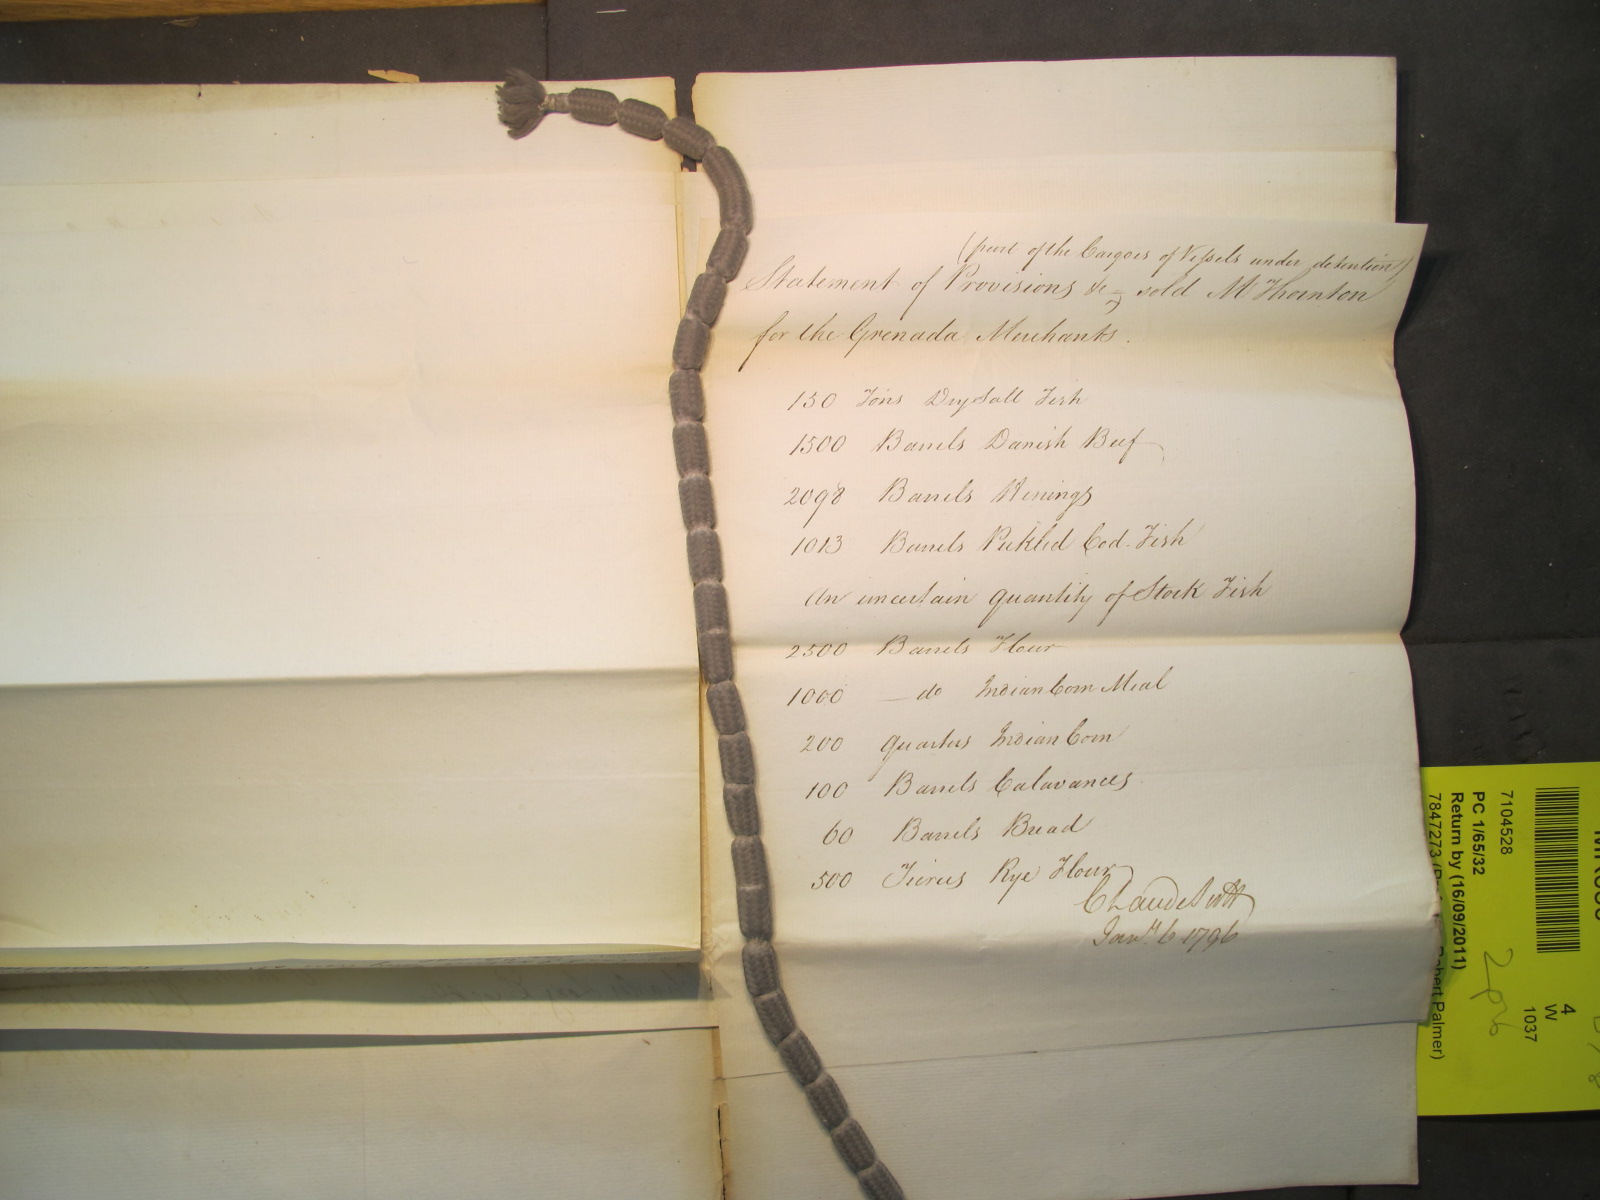 (part of the Cargoes of Vessels under detention)
Statement of Provisions &c sold Mr Thornton
for the Grenada Merchants.
130 Tons Dry Salt Fish
1500 Barrels Danish Beef
2098 Barrels Herrings
1013 Barrels Pickled Cod. Fish
An uncertain quantity of Stock Fish
2500 Barrels Flour
1000 — do Indian Corn Meal
200 Quarters Indian Corn
100 Barrels Calavances
60 Barrels Bread
500 Tierces Rye Flour
Claude Scott
Jany. 6 1796
7104528
PC 1/65/32
Return by (16/09/2011)
7847273
Robert Palmer)
4
W
1037